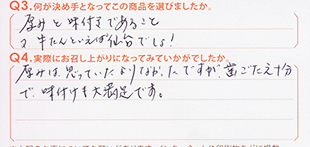 Q3.何が決め手となってこの商品を選びましたか。
厚みと味付きであること
又牛たんといえば仙台でしょ!
Q4.実際にお召し上がりになってみていかがでしたか。
厚みは、思っていたよりなかったですが、歯ごたえ十分
で、味付けも大満足です。